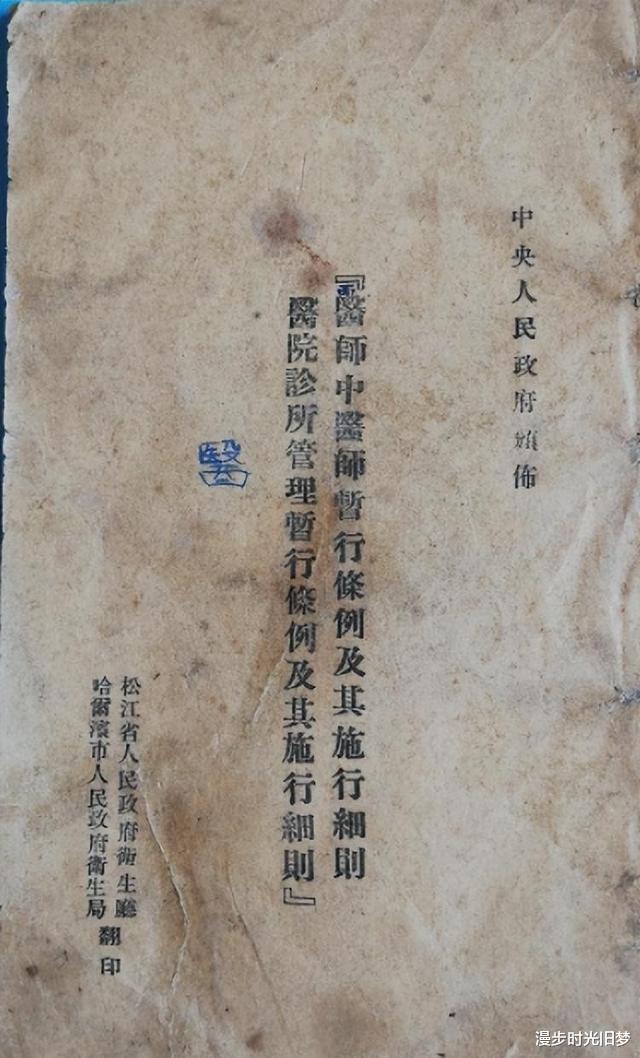 中央人民政府頒佈
『醫師中醫師暫行條例及其施行細則
醫院診所管理暫行條例及其施行細則』
醫
松江省人民政府衛生廳
哈爾濱市人民政府衛生局
翻印
漫步时光旧梦